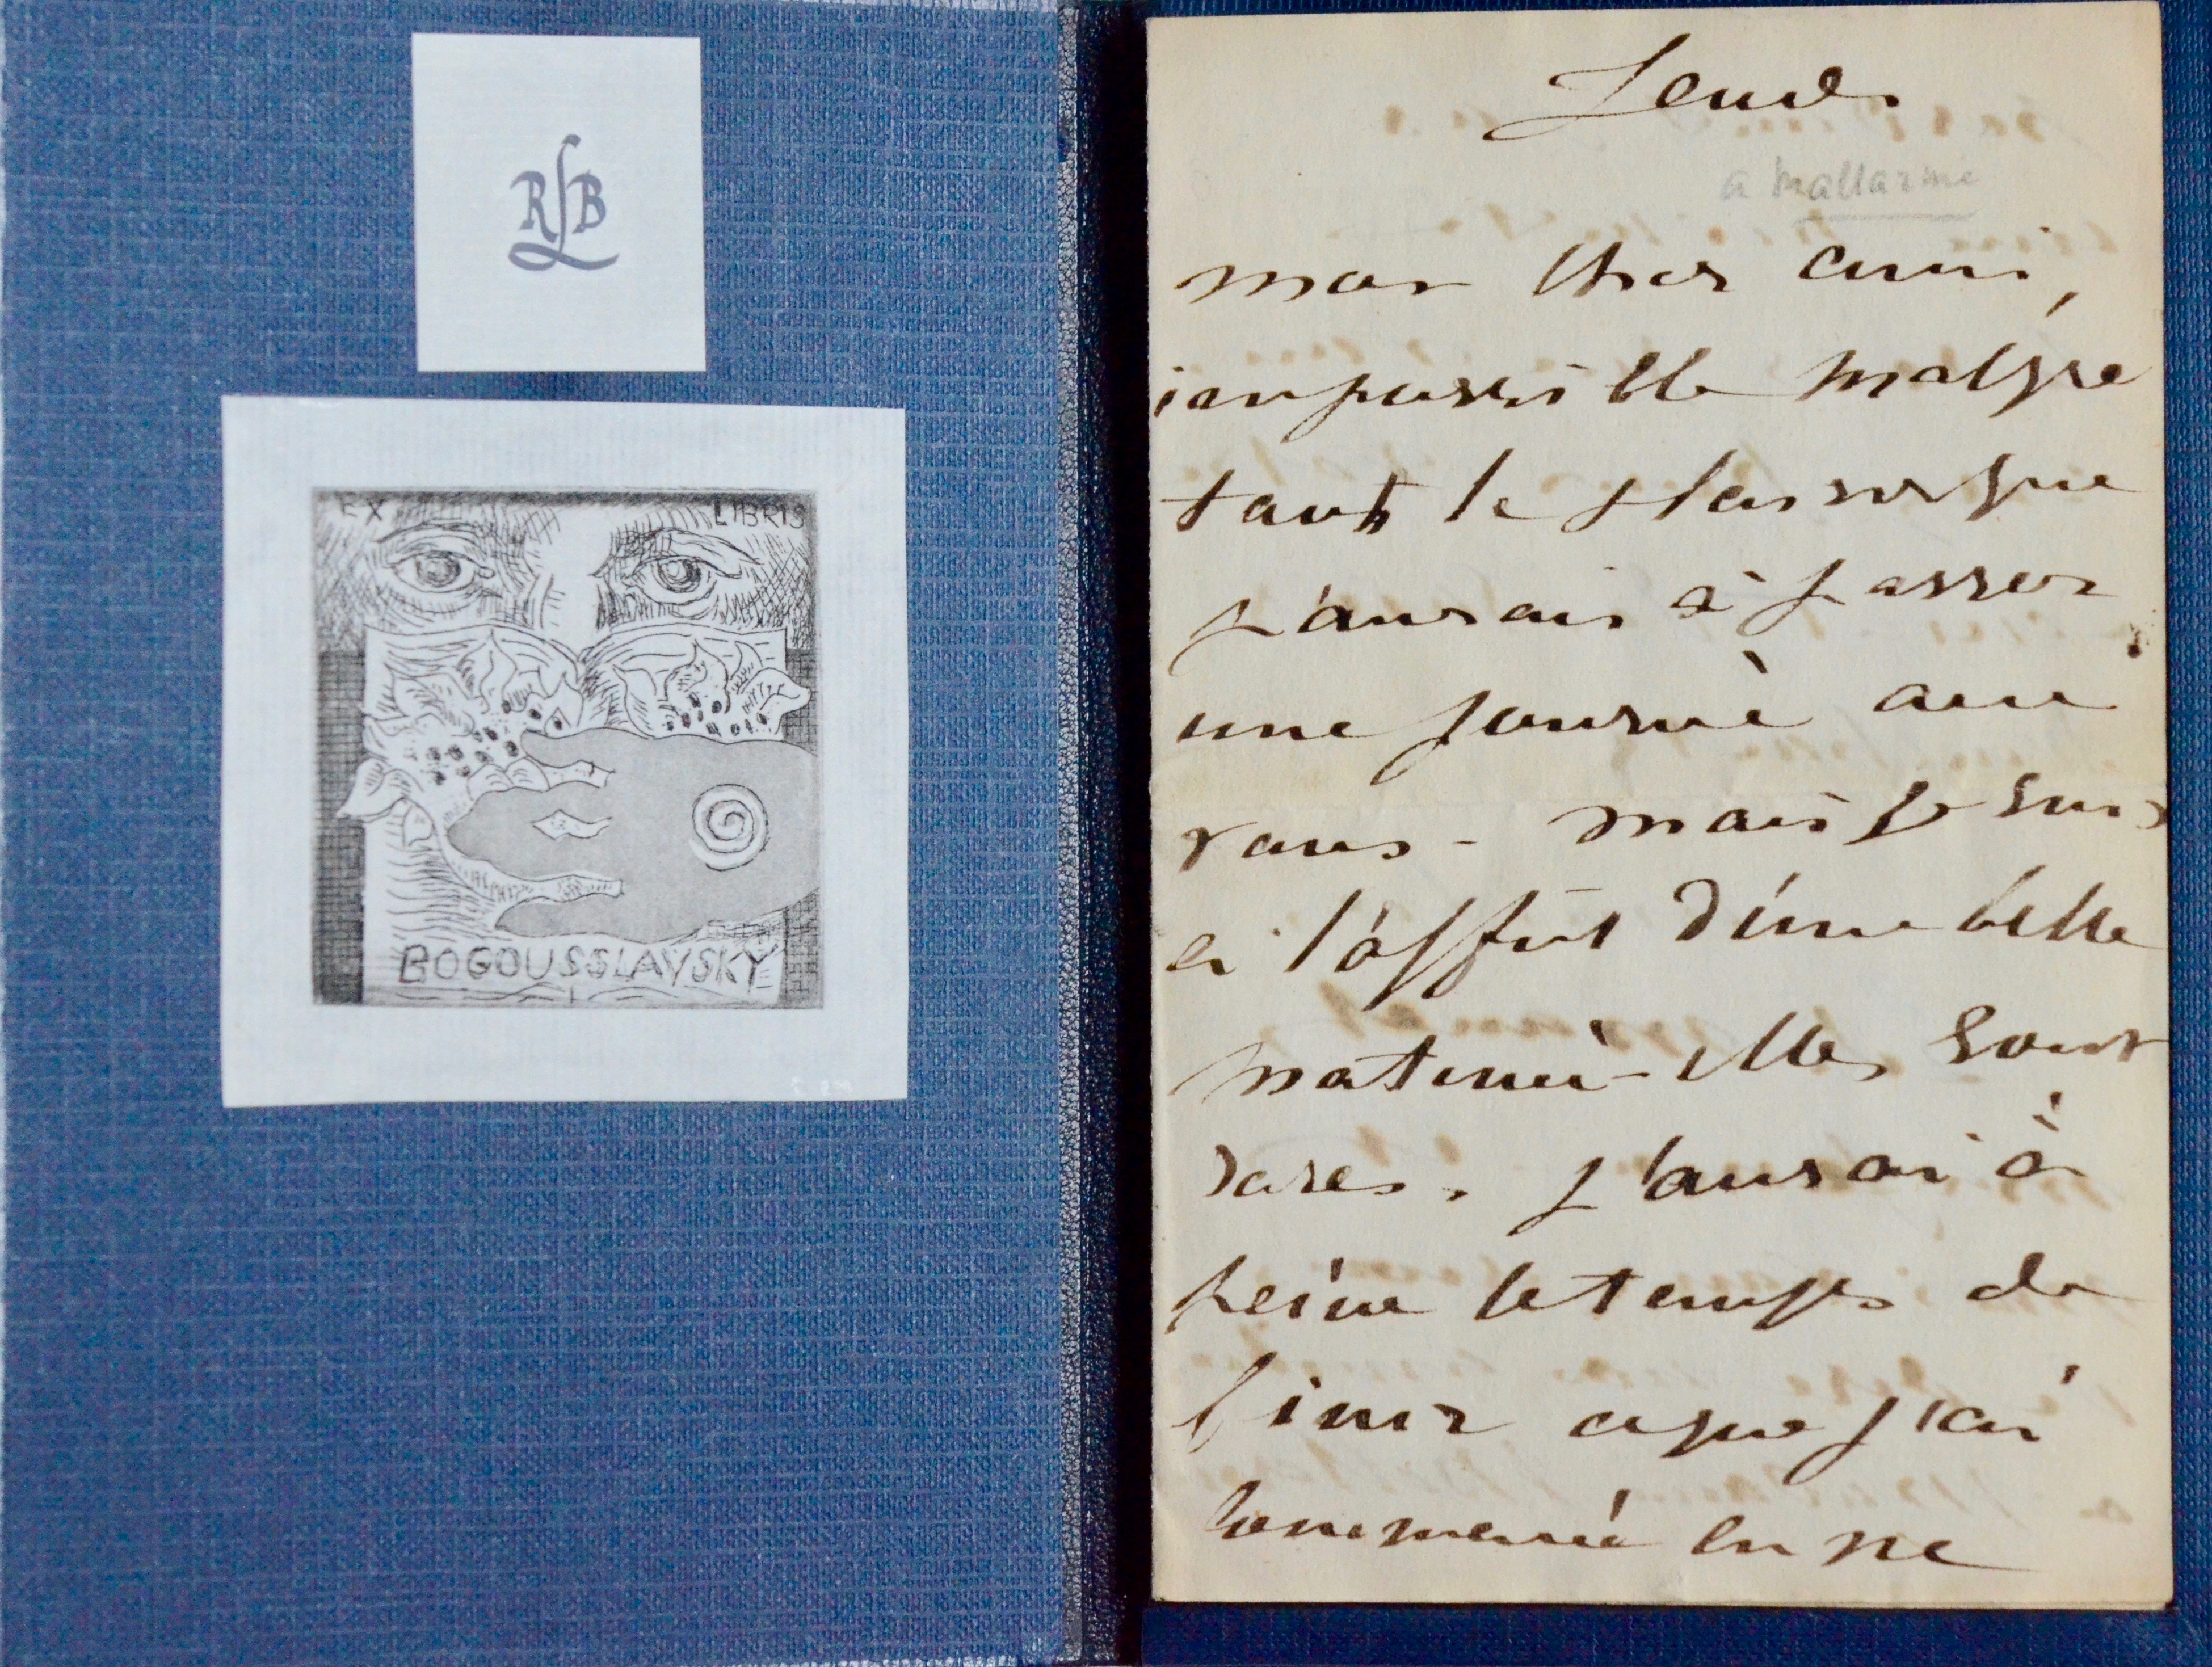 RLB
EX LIBRIS
BOGOUSSLAVSKY
Jeudi
a Mallarmé
mon cher ami,
impossible malgre
tout le plaisir que
j'aurais à passer
une journeè avec
vous - mais je suis
a l'affut d'une belle
matineè - elles sont
rares. j'aurai à
peine le temps de
finir ce que j'ai
commencé en ne